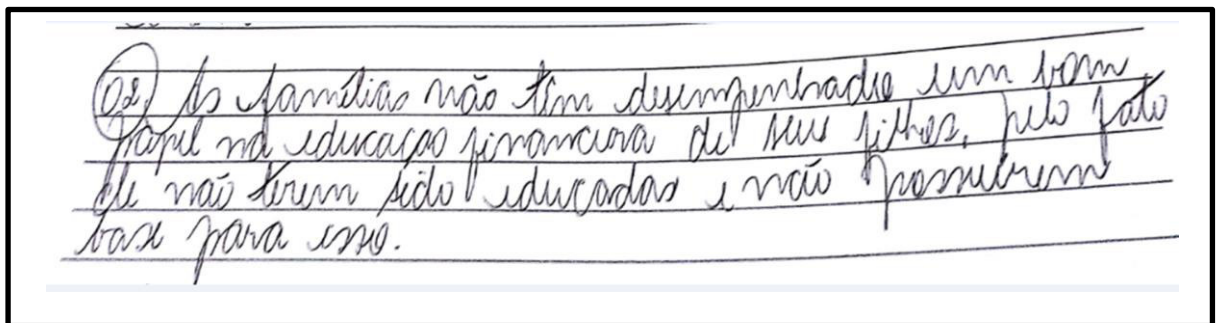 02) As famílias não têm desempenhado um bom
papel na educação financeira de seus filhos, pelo fato
de não terem sido educadas e não possuirem
base para isso.